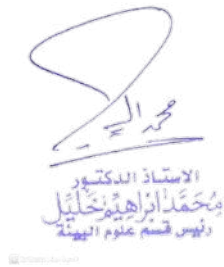 محمد
الاستاذ الدكتور
محمد ابراهيم خليل
رئيس قسم علوم البيئة